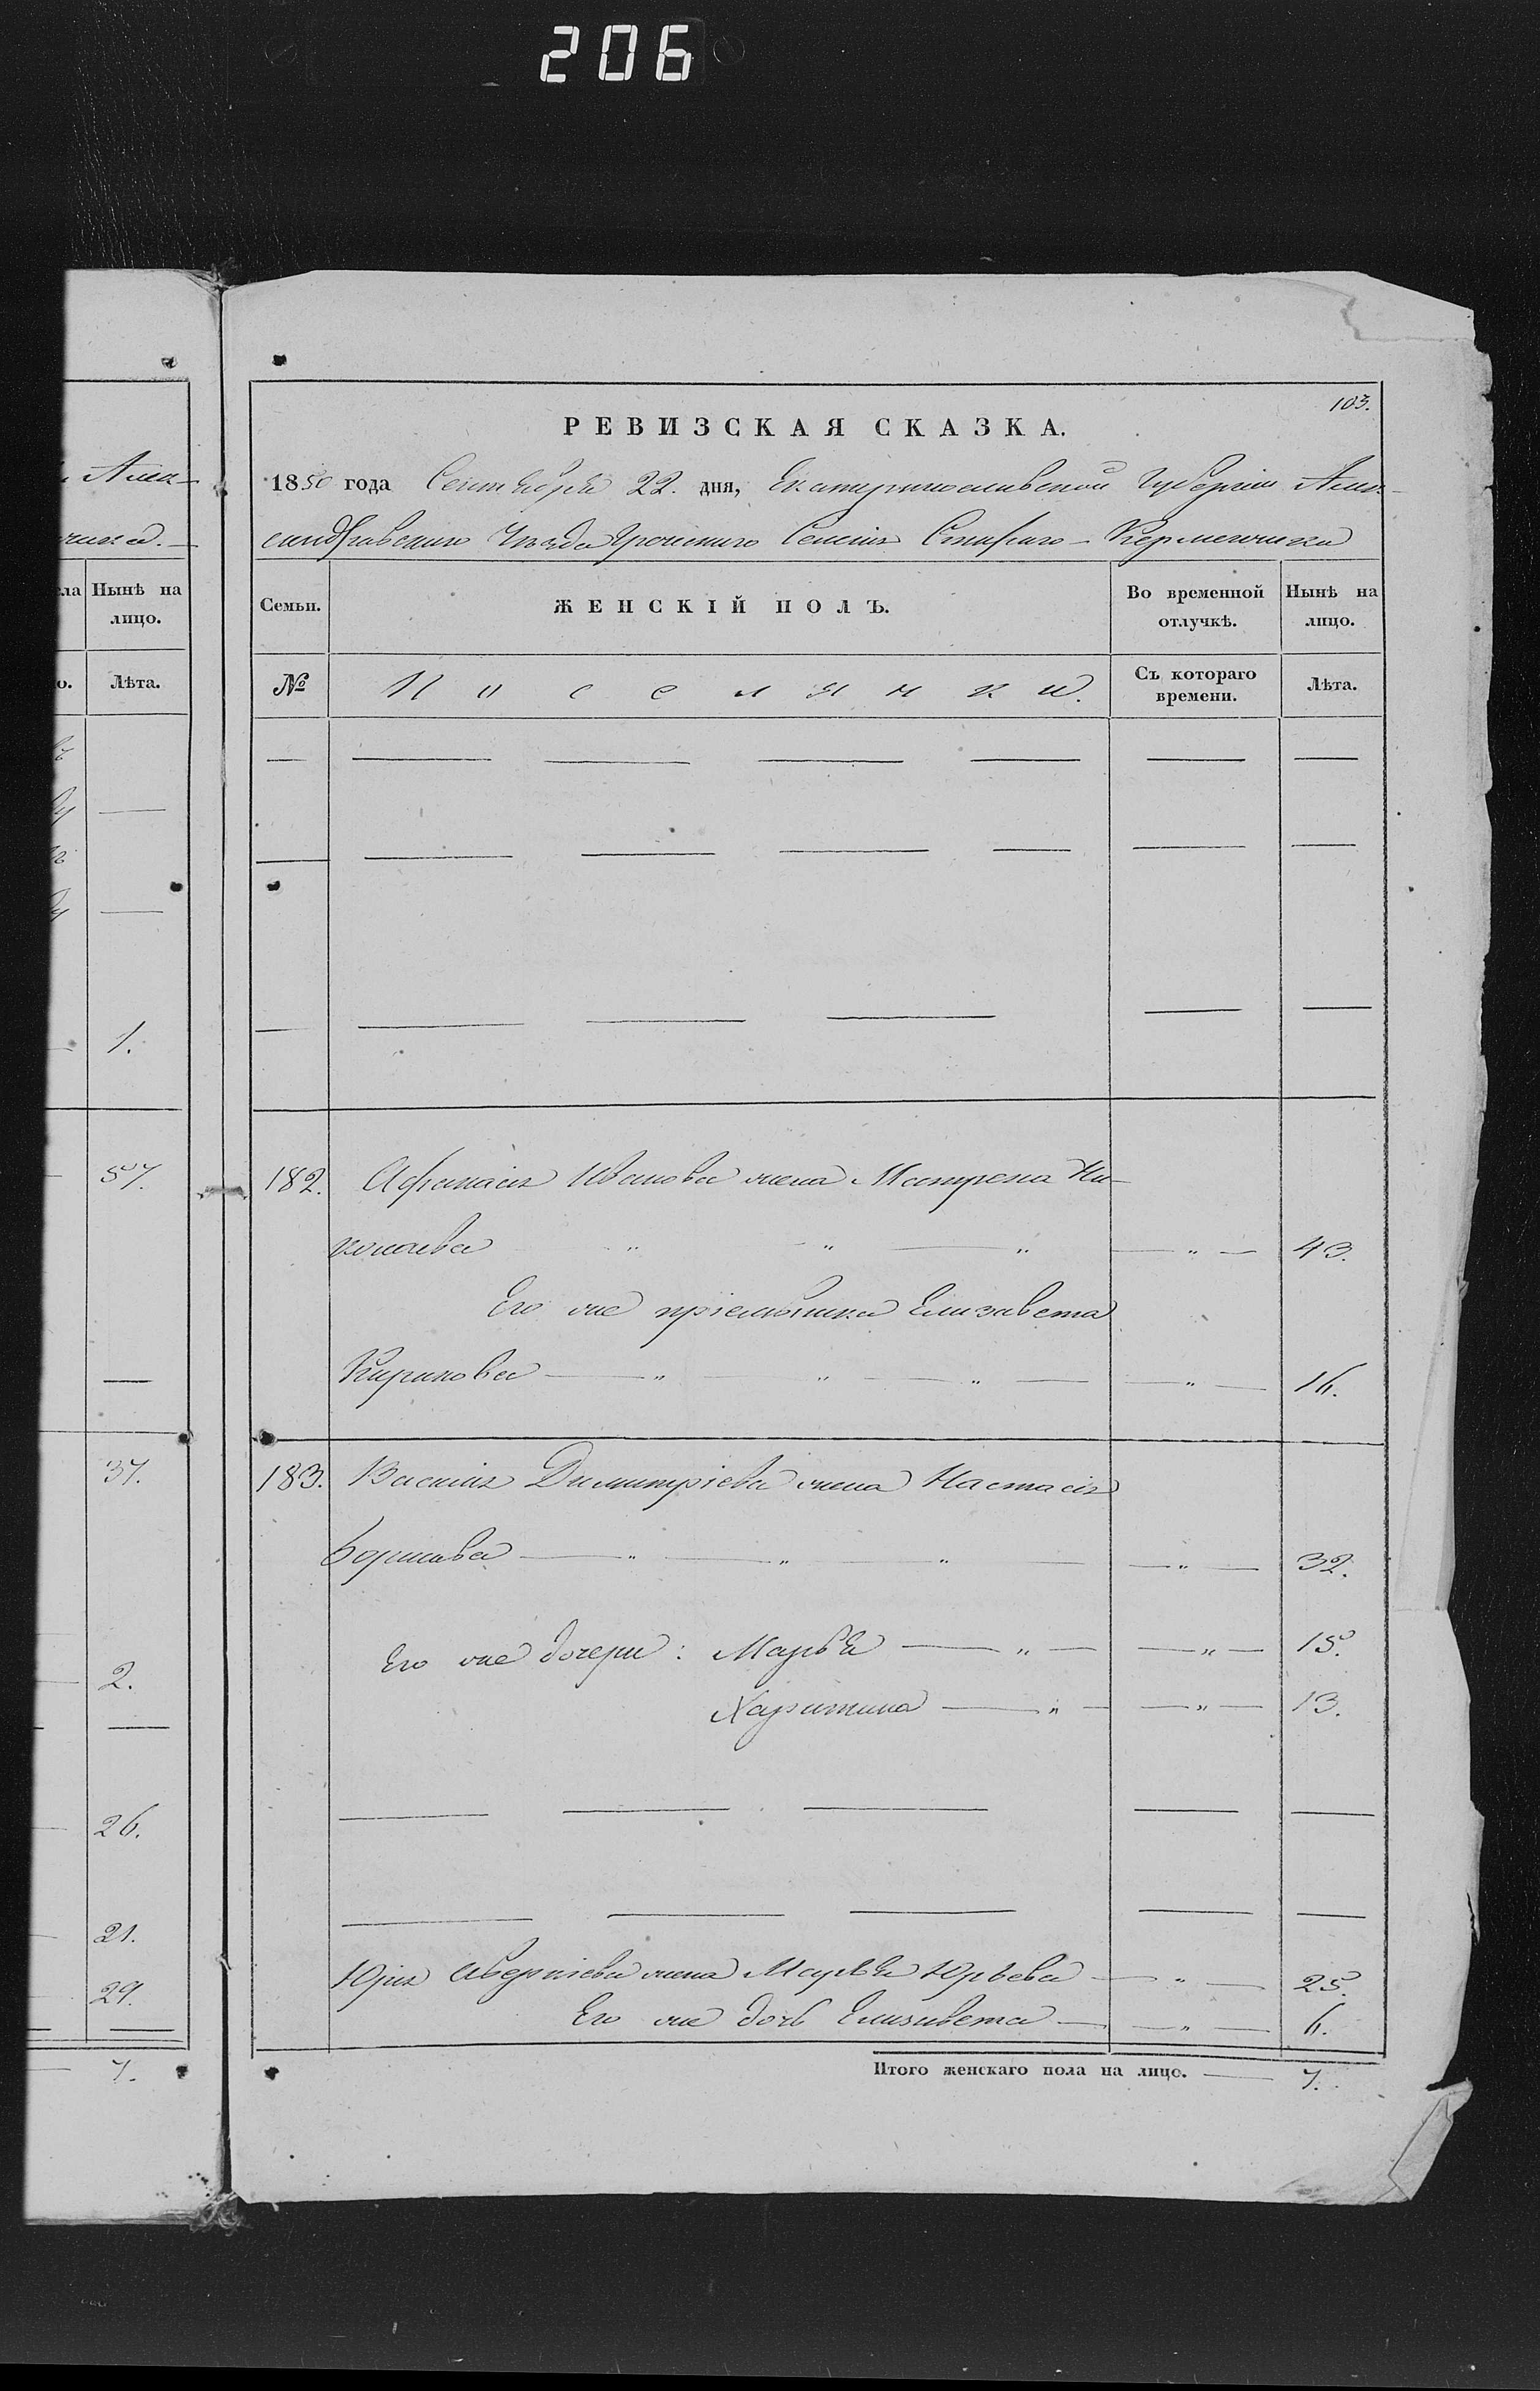 206
103.
РЕВИЗСКАЯ СКАЗКА.
1850 года Сентября 22. дня, Екатеринославской Губерніи Алек-
сандровскаго Уѣзда Греческаго Селенія Стараго-Керменчика
Семьи.
ЖЕНСКІЙ ПОЛЪ.
Во временной отлучкѣ.
Нынѣ на лицо.
№
Поселянки.
Съ котораго времени.
Лѣта.
182. Афанасія Иванова жена Матрена Ни-
колаева " " " " 43.
Его же пріемышка Елизавета
Кирикова " " " " 16.
183. Василія Димитріева жена Настасія
Борисова " " " " 32.
Его же дочери: Марья " " 15.
Харитина " " 13.
Юрія Аверкіева жена Марья Юрьева " 25.
Его же дочь Елизавета " 6.
Итого женскаго пола на лицо. 7.
Алек-
чика.
Нынѣ на
лицо.
Лѣта.
1.
57.
37.
2.
26.
21.
29.
7.